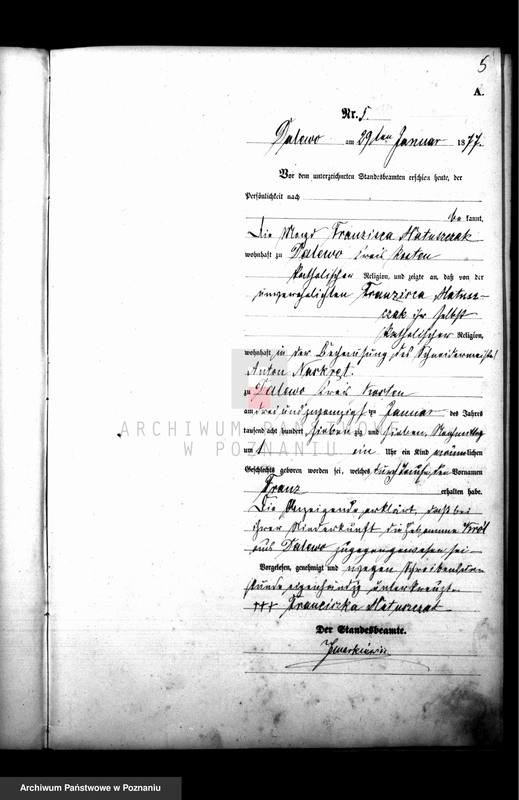 5
A.
Nr. 5.
Dalewo am 29ten Januar 1877.
Vor dem unterzeichneten Standesbeamten erschien heute, der
Persönlichkeit nach
be kannt,
die Magd Franzisca Matuszczak
wohnhaft zu Dalewo Kreis Kosten
katholischer Religion, und zeigte an, daß von der
unverehelichten Franzisca Matusz-
czak ihr selbst
katholischer Religion,
wohnhaft in der Behausung des Schneidermeister
Anton
zu Dalewo Kreis Kosten
am drei und zwanzigsten Januar des Jahres
tausend acht hundert sieben zig und sieben, Nachmittag
um 1 ein Uhr ein Kind männlichen
Geschlechts geboren worden sei, welches durch Taufe den Vornamen
Franz
erhalten habe.
Die Anzeigende erklärt, daß bei
ihrer Niederkunft die Hebamme Król
aus Dalewo zugegen gewesen sei
Vorgelesen, genehmigt und wegen Schreibens
kunde eigenhändig unterkreuzt.
+++ Franciszka
Der Standesbeamte.
ARCHIWUM PAŃSTWOWE
W POZNANIU
Archiwum Państwowe w Poznaniu